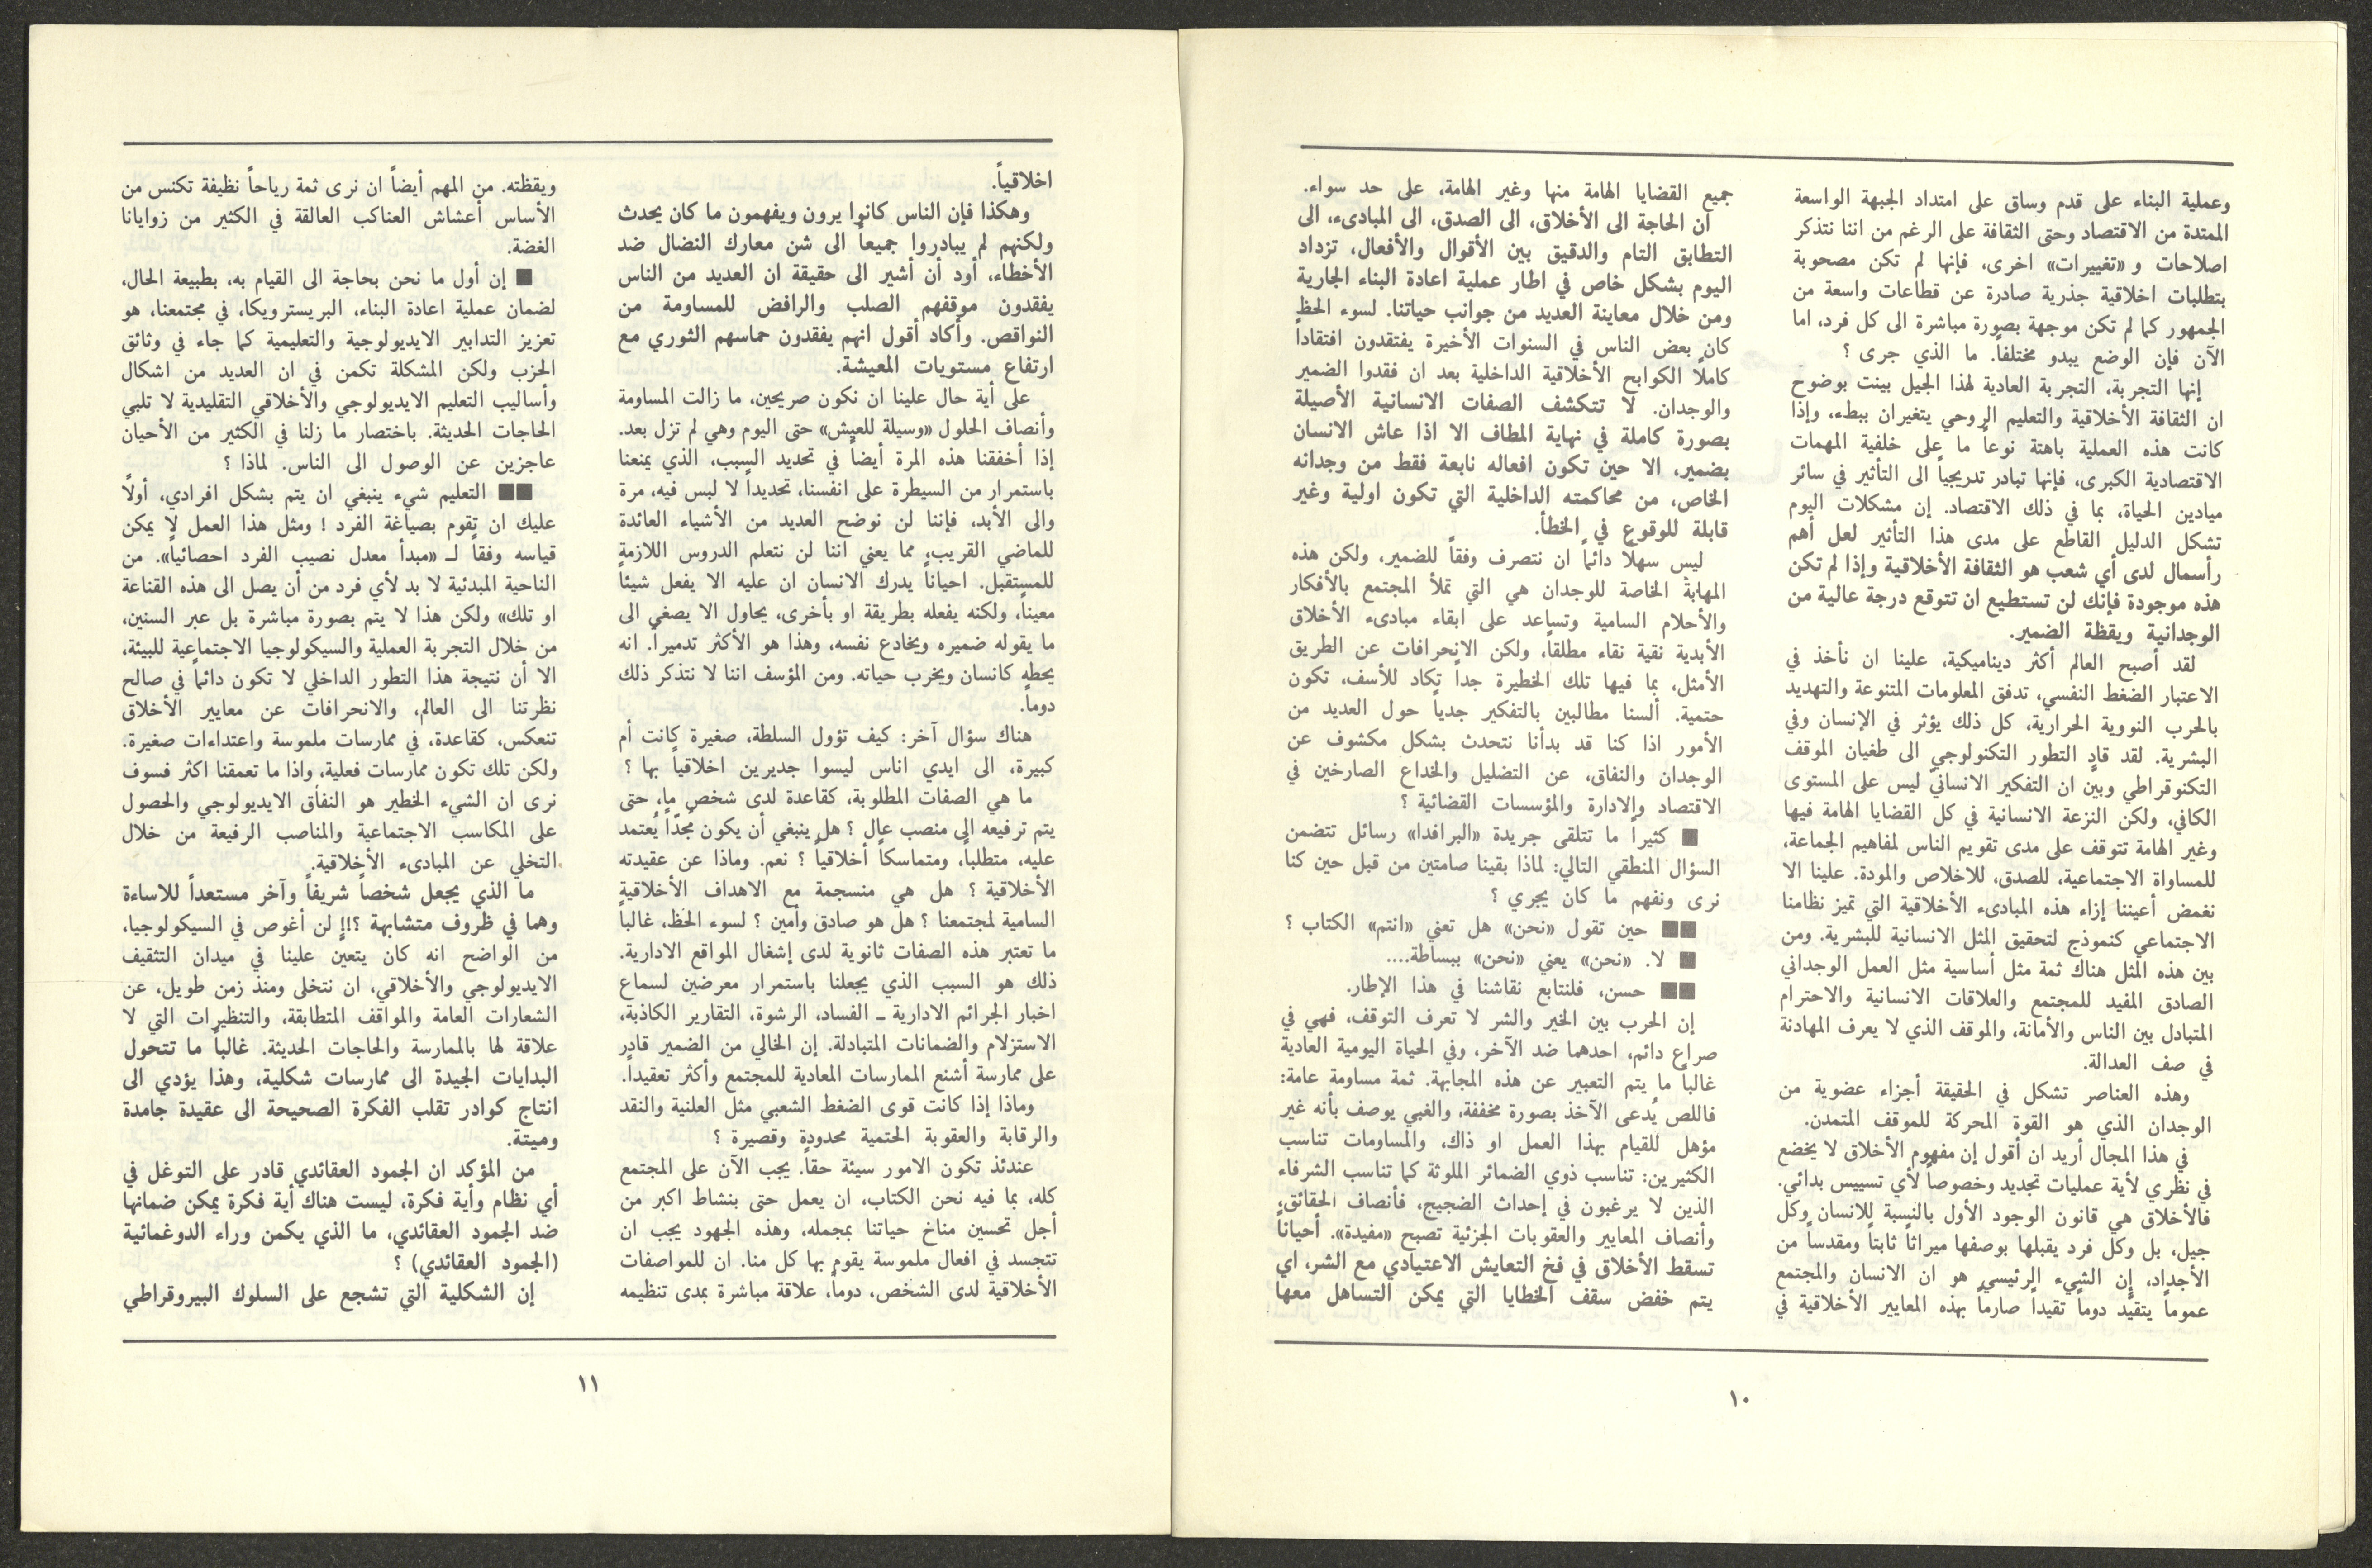 وعملية البناء على قدم وساق على امتداد الجبهة الواسعة
الممتدة من الاقتصاد وحتى الثقافة على الرغم من اننا نتذكر
اصلاحات و «تغييرات» اخرى، فإنها لم تكن مصحوبة
بتطلبات اخلاقية جذرية صادرة عن قطاعات واسعة من
الجمهور كما لم تكن موجهة بصورة مباشرة الى كل فرد، اما
الآن فإن الوضع يبدو مختلفاً. ما الذي جرى ؟
إنها التجربة، التجربة العادية لهذا الجيل بينت بوضوح
ان الثقافة الأخلاقية والتعليم الروحي يتغيران ببطء، وإذا
كانت هذه العملية باهتة نوعاً ما على خلفية المهمات
الاقتصادية الكبرى، فإنها تبادر تدريجياً الى التأثير في سائر
ميادين الحياة، بما في ذلك الاقتصاد. إن مشكلات اليوم
تشكل الدليل القاطع على مدى هذا التأثير لعل أهم
رأسمال لدى أي شعب هو الثقافة الأخلاقية وإذا لم تكن
هذه موجودة فإنك لن تستطيع ان تتوقع درجة عالية من
الوجدانية ويقظة الضمير.
لقد أصبح العالم أكثر ديناميكية، علينا ان نأخذ في
الاعتبار الضغط النفسي، تدفق المعلومات المتنوعة والتهديد
بالحرب النووية الحرارية، كل ذلك يؤثر في الإنسان وفي
البشرية. لقد قاد التطور التكنولوجي الى طغيان الموقف
التكنوقراطي وبين ان التفكير الانساني ليس على المستوى
الكافي، ولكن النزعة الانسانية في كل القضايا الهامة فيها
وغير الهامة تتوقف على مدى تقويم الناس لمفاهيم الجماعة،
للمساواة الاجتماعية، للصدق، للاخلاص والمودة. علينا الا
نغمض أعيننا إزاء هذه المبادىء الأخلاقية التي تميز نظامنا
الاجتماعي كنموذج لتحقيق المثل الانسانية للبشرية. ومن
بين هذه المثل هناك ثمة مثل أساسية مثل العمل الوجداني
الصادق المفيد للمجتمع والعلاقات الانسانية والاحترام
المتبادل بين الناس والأمانة، والموقف الذي لا يعرف المهادنة
في صف العدالة.
وهذه العناصر تشكل في الحقيقة أجزاء عضوية من
الوجدان الذي هو القوة المحركة للموقف المتمدن.
في هذا المجال أريد ان أقول إن مفهوم الأخلاق لا يخضع
في نظري لأية عمليات تجديد وخصوصاً لأي تسييس بدائي.
فالأخلاق هي قانون الوجود الأول بالنسبة للانسان وكل
جيل، بل وكل فرد يقبلها بوصفها ميراثاً ثابتاً ومقدساً من
الأجداد، إن الشيء الرئيسي هو ان الانسان والمجتمع
عموماً يتقيّد دوماً تقيداً صارماً بهذه المعايير الأخلاقية في
جميع القضايا الهامة منها وغير الهامة، على حد سواء.
ان الحاجة الى الأخلاق، الى الصدق، الى المبادىء، الى
التطابق التام والدقيق بين الأقوال والأفعال، تزداد
اليوم بشكل خاص في اطار عملية اعادة البناء الجارية
ومن خلال معاينة العديد من جوانب حياتنا. لسوء الحظ
كان بعض الناس في السنوات الأخيرة يفتقدون افتقاداً
كاملاً الكوابح الأخلاقية الداخلية بعد ان فقدوا الضمير
والوجدان. لا تتكشف الصفات الانسانية الأصيلة
بصورة كاملة في نهاية المطاف الا اذا عاش الانسان
بضمير، الا حين تكون افعاله نابعة فقط من وجدانه
الخاص، من محاكمته الداخلية التي تكون اولية وغير
قابلة للوقوع في الخطأ.
ليس سهلاً دائماً ان نتصرف وفقاً للضمير، ولكن هذه
المهابة الخاصة للوجدان هي التي تملأ المجتمع بالأفكار
والأحلام السامية وتساعد على ابقاء مبادىء الأخلاق
الأبدية نقية نقاء مطلقاً، ولكن الانحرافات عن الطريق
الأمثل، بما فيها تلك الخطيرة جداً تكاد للأسف، تكون
حتمية. ألسنا مطالبين بالتفكير جدياً حول العديد من
الأمور اذا كنا قد بدأنا نتحدث بشكل مكشوف عن
الوجدان والنفاق، عن التضليل والخداع الصارخين في
الاقتصاد والادارة والمؤسسات القضائية ؟
■ كثيراً ما تتلقى جريدة «البرافدا» رسائل تتضمن
السؤال المنطقي التالي: لماذا بقينا صامتين من قبل حين كنا
نرى ونفهم ما كان يجري ؟
■■ حين تقول «نحن» هل تعني «انتم» الكتاب ؟
■ لا. «نحن» يعني «نحن» ببساطة....
■■ حسن، فلنتابع نقاشنا في هذا الإطار.
إن الحرب بين الخير والشر لا تعرف التوقف، فهي في
صراع دائم، احدهما ضد الآخر، وفي الحياة اليومية العادية
غالباً ما يتم التعبير عن هذه المجابهة. ثمة مساومة عامة:
فاللص يُدعى الآخذ بصورة مخففة، والغبي يوصف بأنه غير
مؤهل للقيام بهذا العمل او ذاك، والمساومات تناسب
الكثيرين: تناسب ذوي الضمائر الملوثة كما تناسب الشرفاء
الذين لا يرغبون في إحداث الضجيج، فأنصاف الحقائق،
وأنصاف المعايير والعقوبات الجزئية تصبح «مفيدة». أحياناً
تسقط الأخلاق في فخ التعايش الاعتيادي مع الشر، اي
يتم خفض سقف الخطايا التي يمكن التساهل معها
١٠
اخلاقياً.
وهكذا فإن الناس كانوا يرون ويفهمون ما كان يحدث
ولكنهم لم يبادروا جميعاً الى شن معارك النضال ضد
الأخطاء، أود أن أشير الى حقيقة ان العديد من الناس
يفقدون موقفهم الصلب والرافض للمساومة من
النواقص. وأكاد أقول انهم يفقدون حماسهم الثوري مع
ارتفاع مستويات المعيشة.
على أية حال علينا ان نكون صريحين، ما زالت المساومة
وأنصاف الحلول «وسيلة للعيش» حتى اليوم وهي لم تزل بعد.
إذا أخفقنا هذه المرة أيضاً في تحديد السبب، الذي يمنعنا
باستمرار من السيطرة على انفسنا، تحديداً لا لبس فيه، مرة
والى الأبد، فإننا لن نوضح العديد من الأشياء العائدة
للماضي القريب، مما يعني اننا لن نتعلم الدروس اللازمة
للمستقبل. احياناً يدرك الانسان ان عليه الا يفعل شيئاً
معيناً، ولكنه يفعله بطريقة او بأخرى، يحاول الا يصغي الى
ما يقوله ضميره ويخادع نفسه، وهذا هو الأكثر تدميراً. انه
يحطه كانسان ويخرب حياته. ومن المؤسف اننا لا نتذكر ذلك
دوماً.
هناك سؤال آخر: كيف تؤول السلطة، صغيرة كانت أم
كبيرة، الى ايدي اناس ليسوا جديرين اخلاقياً بها ؟
ما هي الصفات المطلوبة، كقاعدة لدى شخص ما، حتى
يتم ترفيعه الى منصب عال ؟ هل ينبغي أن يكون مجدّاً يُعتمد
عليه، متطلباً، ومتماسكاً أخلاقياً ؟ نعم. وماذا عن عقيدته
الأخلاقية ؟ هل هي منسجمة مع الاهداف الأخلاقية
السامية لمجتمعنا ؟ هل هو صادق وأمين ؟ لسوء الحظ، غالباً
ما تعتبر هذه الصفات ثانوية لدى إشغال المواقع الادارية.
ذلك هو السبب الذي يجعلنا باستمرار معرضين لسماع
اخبار الجرائم الادارية ــ الفساد، الرشوة، التقارير الكاذبة،
الاستزلام والضمانات المتبادلة. إن الخالي من الضمير قادر
على ممارسة أشنع الممارسات المعادية للمجتمع وأكثر تعقيداً.
وماذا إذا كانت قوى الضغط الشعبي مثل العلنية والنقد
والرقابة والعقوبة الحتمية محدودة وقصيرة ؟
عندئذ تكون الامور سيئة حقاً. يجب الآن على المجتمع
كله، بما فيه نحن الكتاب، ان يعمل حتى بنشاط اكبر من
أجل تحسين مناخ حياتنا بمجمله، وهذه الجهود يجب ان
تتجسد في افعال ملموسة يقوم بها كل منا. ان للمواصفات
الأخلاقية لدى الشخص، دوماً، علاقة مباشرة بمدى تنظيمه
ويقظته. من المهم أيضاً ان نرى ثمة رياحاً نظيفة تكنس من
الأساس أعشاش العناكب العالقة في الكثير من زوايانا
الغضة.
■ إن أول ما نحن بحاجة الى القيام به، بطبيعة الحال،
لضمان عملية اعادة البناء، البريسترويكا، في مجتمعنا، هو
تعزيز التدابير الايديولوجية والتعليمية كما جاء في وثائق
الحزب ولكن المشكلة تكمن في ان العديد من اشكال
وأساليب التعليم الايديولوجي والأخلاقي التقليدية لا تلبي
الحاجات الحديثة. باختصار ما زلنا في الكثير من الأحيان
عاجزين عن الوصول الى الناس. لماذا ؟
■■ التعليم شيء ينبغي ان يتم بشكل افرادي، أولاً
عليك ان تقوم بصياغة الفرد ! ومثل هذا العمل لا يمكن
قياسه وفقاً لـ «مبدأ معدل نصيب الفرد احصائياً». من
الناحية المبدئية لا بد لأي فرد من أن يصل الى هذه القناعة
او تلك» ولكن هذا لا يتم بصورة مباشرة بل عبر السنين،
من خلال التجربة العملية والسيكولوجيا الاجتماعية للبيئة،
الا أن نتيجة هذا التطور الداخلي لا تكون دائماً في صالح
نظرتنا الى العالم، والانحرافات عن معايير الأخلاق
تنعكس، كقاعدة، في ممارسات ملموسة واعتداءات صغيرة.
ولكن تلك تكون ممارسات فعلية، واذا ما تعمقنا اكثر فسوف
نرى ان الشيء الخطير هو النفاق الايديولوجي والحصول
على المكاسب الاجتماعية والمناصب الرفيعة من خلال
التخلي عن المبادىء الأخلاقية.
ما الذي يجعل شخصاً شريفاً وآخر مستعداً للاساءة
وهما في ظروف متشابهة ؟!! لن أغوص في السيكولوجيا،
من الواضح انه كان يتعين علينا في ميدان التثقيف
الايديولوجي والأخلاقي، ان نتخلى ومنذ زمن طويل، عن
الشعارات العامة والمواقف المتطابقة، والتنظيرات التي لا
علاقة لها بالممارسة والحاجات الحديثة. غالباً ما تتحول
البدايات الجيدة الى ممارسات شكلية، وهذا يؤدي الى
انتاج كوادر تقلب الفكرة الصحيحة الى عقيدة جامدة
وميتة.
من المؤكد ان الجمود العقائدي قادر على التوغل في
أي نظام وأية فكرة، ليست هناك أية فكرة يمكن ضمانها
ضد الجمود العقائدي، ما الذي يكمن وراء الدوغمائية
(الجمود العقائدي) ؟
إن الشكلية التي تشجع على السلوك البيروقراطي
١١